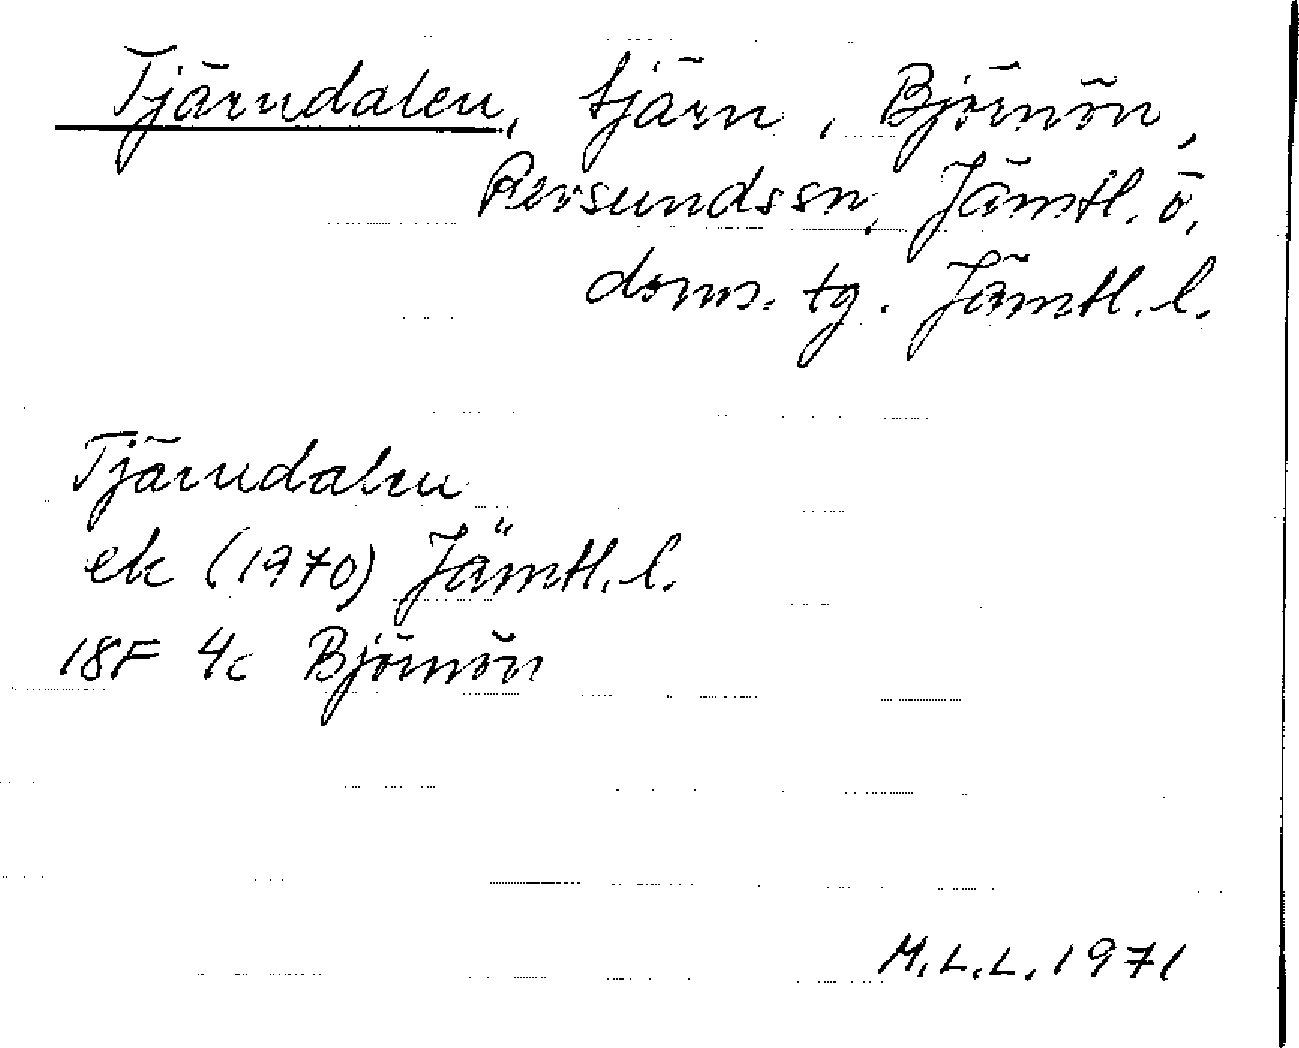 Tjärndalen, tjärn, Björnön,
Revsundssn, Jämtl. ö,
doms. tg. Jämtl. l.
Tjärndalen
ek (1970) Jämtl. l.
18F 4c Björnön
M.L.L. 1971